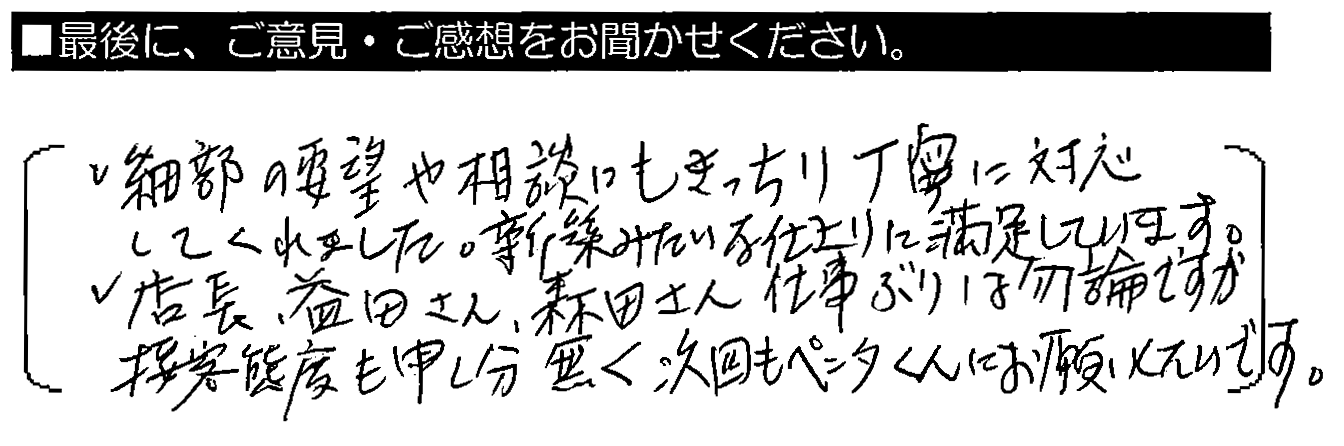 ■最後に、ご意見・ご感想をお聞かせください。
✓細部の要望や相談にもきっちり丁寧に対応
してくれました。新築みたいな仕上りに満足しています。
✓店長、益田さん、森田さん 仕事ぶりは勿論ですが
接客態度も申し分無く次回もペンタくんにお願いしたいです。